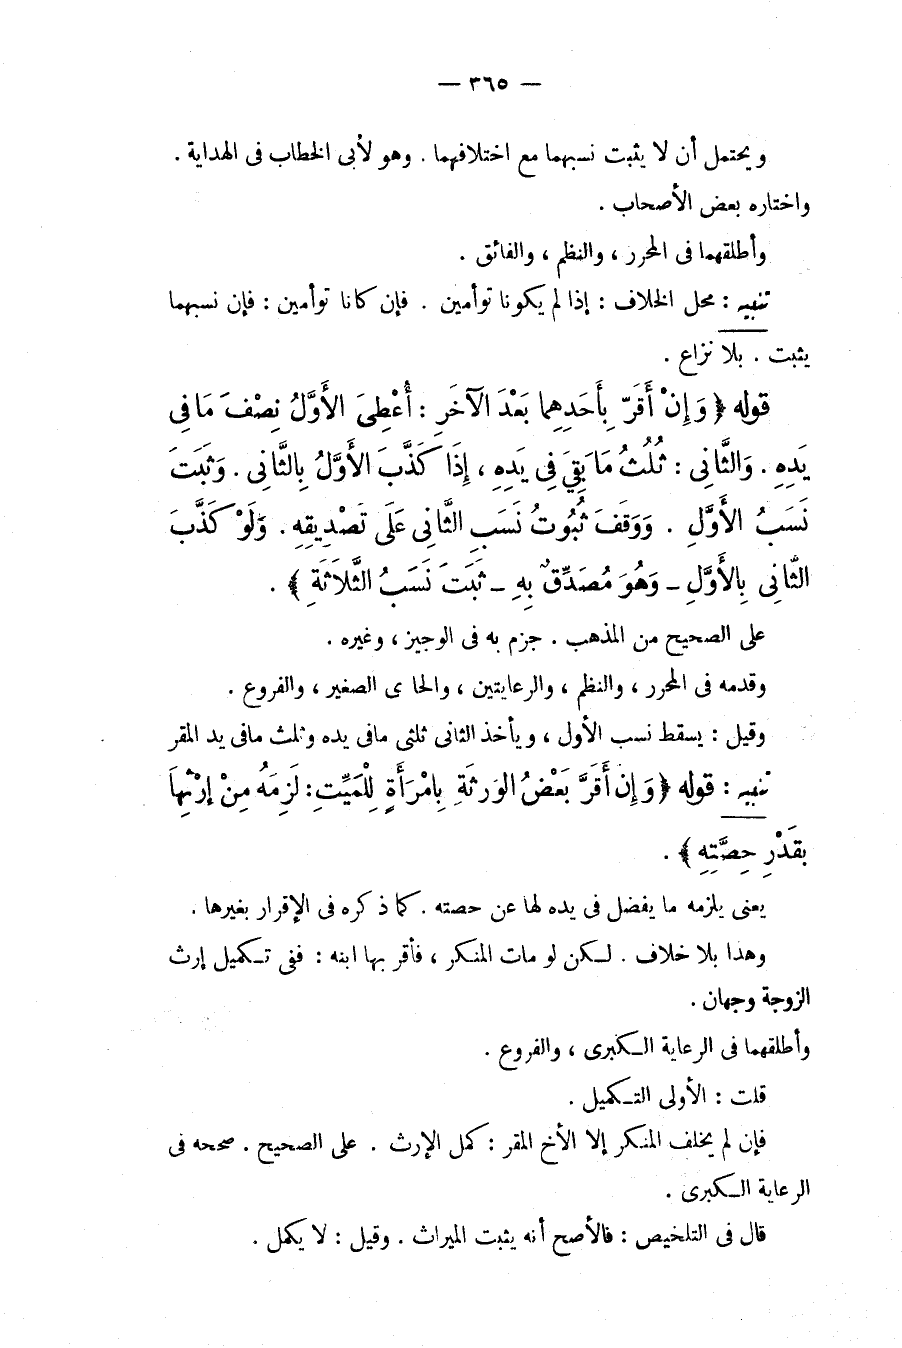 — ٣٦٥ —
ويحتمل أن لا يثبت نسبهما مع اختلافهما . وهو لأبى الخطاب فى الهداية .
واختاره بعض الأصحاب .
وأطلقهما فى المحرر ، والنظم ، والفائق .
تنبيه : محل الخلاف : إذا لم يكونا توأمين . فإن كانا توأمين : فإن نسبهما
يثبت . بلا نزاع .
قوله ﴿ وَإِنْ أَقَرَّ بِأَحَدِهِمَا بَعْدَ الآخَرِ : أُعْطِىَ الأَوَّلُ نِصْفَ مَا فِى
يَدِهِ . وَالثَّانِى : ثُلُثُ مَا بَقِىَ فِى يَدِهِ ، إِذَا كَذَّبَ الأَوَّلُ بِالثَّانِى . وَثَبَتَ
نَسَبُ الأَوَّلِ . وَوَقَفَ ثُبُوتُ نَسَبِ الثَّانِى عَلَى تَصْدِيقِهِ . وَلَوْ كَذَّبَ
الثَّانِى بِالأَوَّلِ ـ وَهُوَ مُصَدِّقٌ بِهِ ـ ثَبَتَ نَسَبُ الثَّلَاثَةِ ﴾ .
على الصحيح من المذهب . جزم به فى الوجيز ، وغيره .
وقدمه فى المحرر ، والنظم ، والرعايتين ، والحا ى الصغير ، والفروع .
وقيل : يسقط نسب الأول ، ويأخذ الثانى ثلثى مافى يده وثلث مافى يد المقر
تنبيه : قوله ﴿ وَإِن أَقَرَّ بَعْضُ الوَرثَةِ بِامْرَأَةٍ لِلْمَيِّتِ : لَزِمَهُ مِنْ إِرْثِهَا
بقَدْرِ حِصَّتِهِ ﴾ .
يعنى يلزمه ما يفضل فى يده لها عن حصته . كما ذكره فى الإقرار بغيرها .
وهذا بلا خلاف . لكن لو مات المنكر ، فأقر بها ابنه : ففى تكميل إرث
الزوجة وجهان .
وأطلقهما فى الرعاية الكبرى ، والفروع .
قلت : الأولى التكميل .
فإن لم يخلف المنكر إلا الأخ المقر : كمل الإرث . على الصحيح . صححه فى
الرعاية الكبرى .
قال فى التلخيص : فالأصح أنه يثبت الميراث . وقيل : لا يكمل .